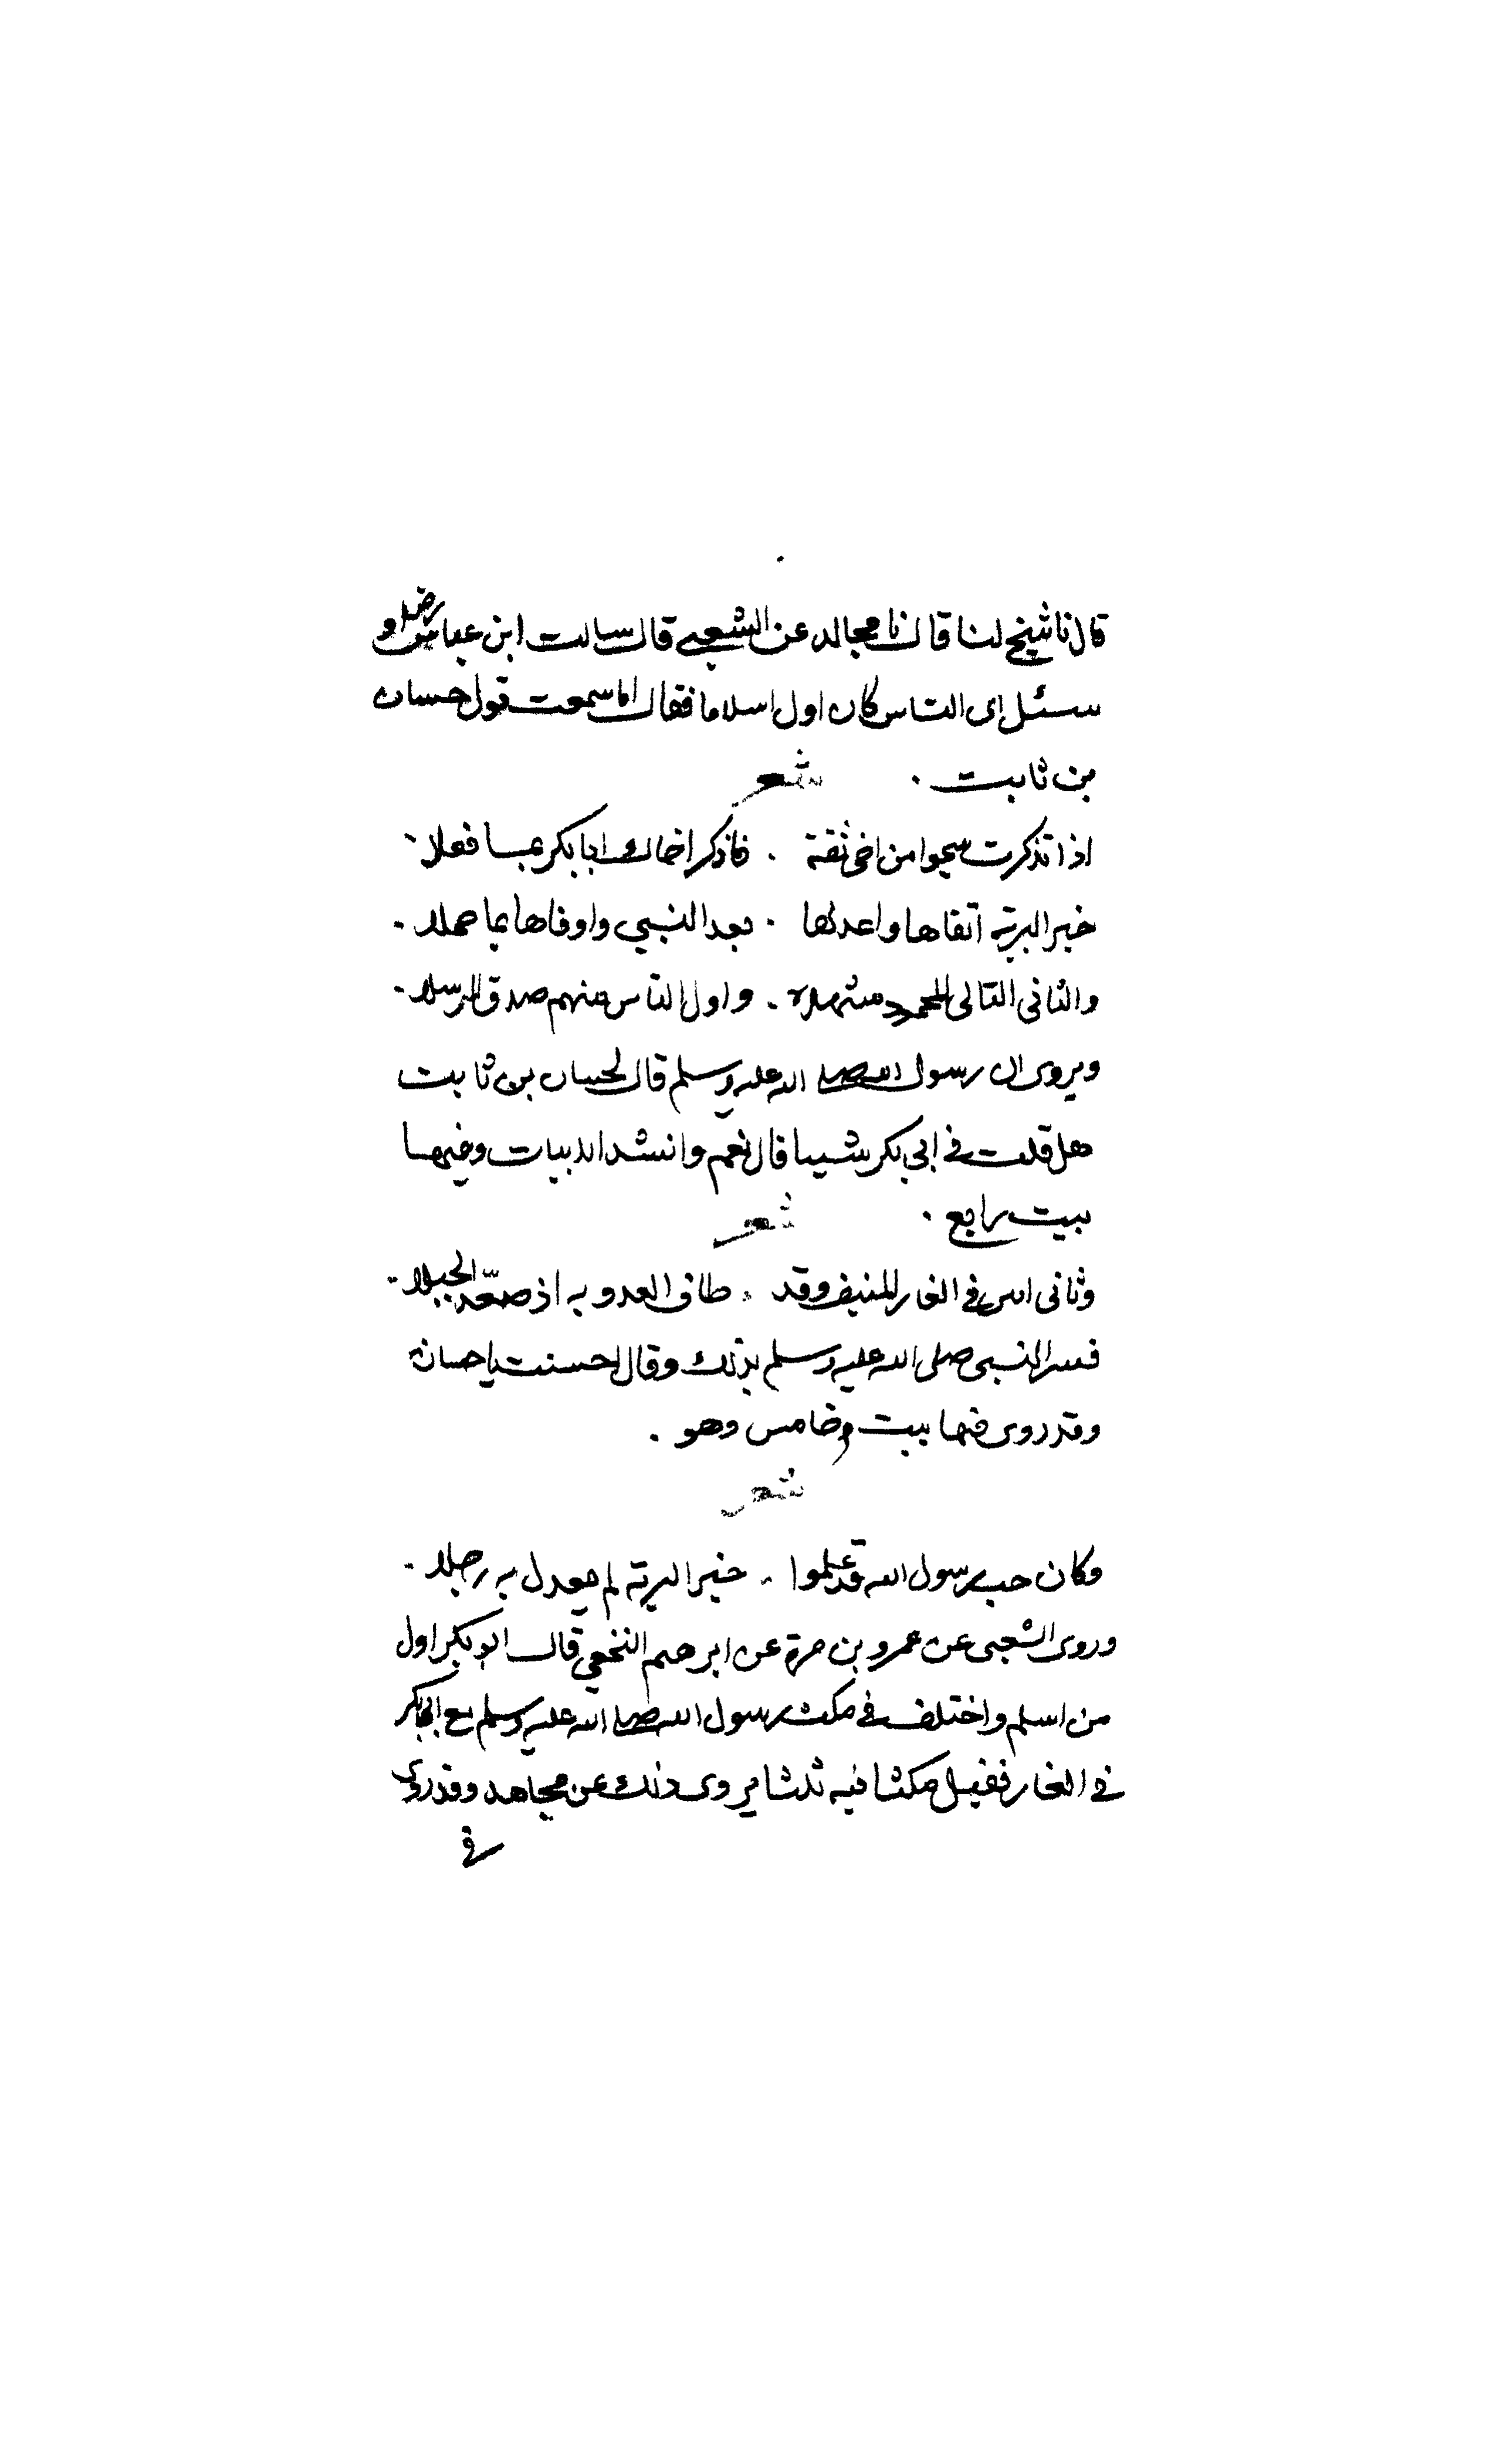 قال نا شيخ لنا قال نا مجالد عن الشعبي قال سالت ابن عباس رضه او
سئل اى الناس كان اول اسلاما فقال اما سمعت قول حسان
بن ثابت . شعر
اذا تذكرت شجوا من اخى ثقة . فاذكر اخاك ابا بكر بما فعلا .
خير البرية اتقاها واعدلها . بعد النبي واوفاها بما حملا .
والثانى التالى المحمود مشهده . واول الناس منهم صدق الرسلا .
ويروى ان رسول الله صلى الله عليه وسلم قال لحسان بن ثابت
هل قلت في ابي بكر شيئا قال نعم وانشد الابيات وفيها
بيت رابع . شعر
وثانى اثنين في الغار المنيف وقد . طاف العدو به اذ صعّد الجبلا .
فسر النبي صلى الله عليه وسلم بذلك وقال احسنت يا حسان
وقد روى فيها بيت خامس وهو .
شعر
وكان حب رسول الله قد علموا . خير البرية لم يعدل به رجلا .
وروى الشعبى عن عمرو بن مرة عن ابرهيم النخعي قال ابو بكر اول
من اسلم واختلف في مكث رسول الله صلى الله عليه وسلم مع ابي بكر
في الغار فقيل مكثا فيه ثلثا يروى ذلك عن مجاهد وقد روى
في